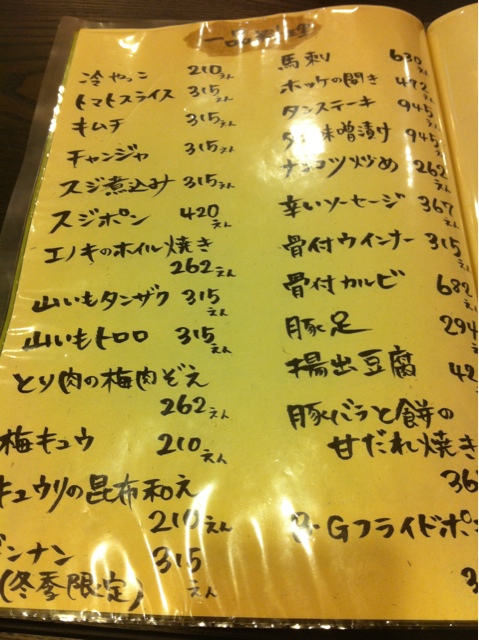 一品料理
冷やっこ 210えん
トマトスライス 315えん
キムチ 315えん
チャンジャ 315えん
スジ煮込み 315えん
スジポン 420えん
エノキのホイル焼き
262えん
山いもタンザク 315えん
山いもトロロ 315えん
とり肉の梅肉ぞえ
262えん
梅キュウ 210えん
キュウリの昆布和え
210えん
ギンナン 315えん
(冬季限定)
馬刺 630えん
ホッケの開き 472えん
タンステーキ 945えん
タン味噌漬け 945えん
ナンコツ炒め 262えん
辛いソーセージ 367えん
骨付ウインナー 315えん
骨付カルビ 682えん
豚足 294えん
揚出豆腐 42
豚バラと餅の
甘だれ焼き
36
B・Gフライドポ
3